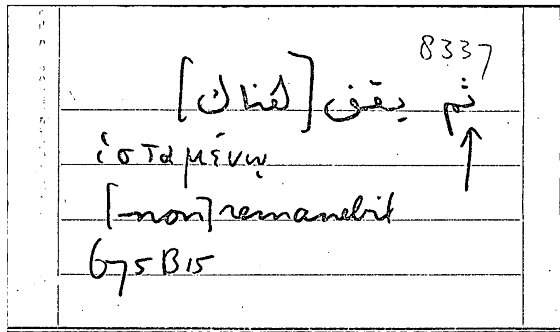 8337
ثم يقف [هناك]
ἱσταμένῳ
[-non] remanebit
675B15